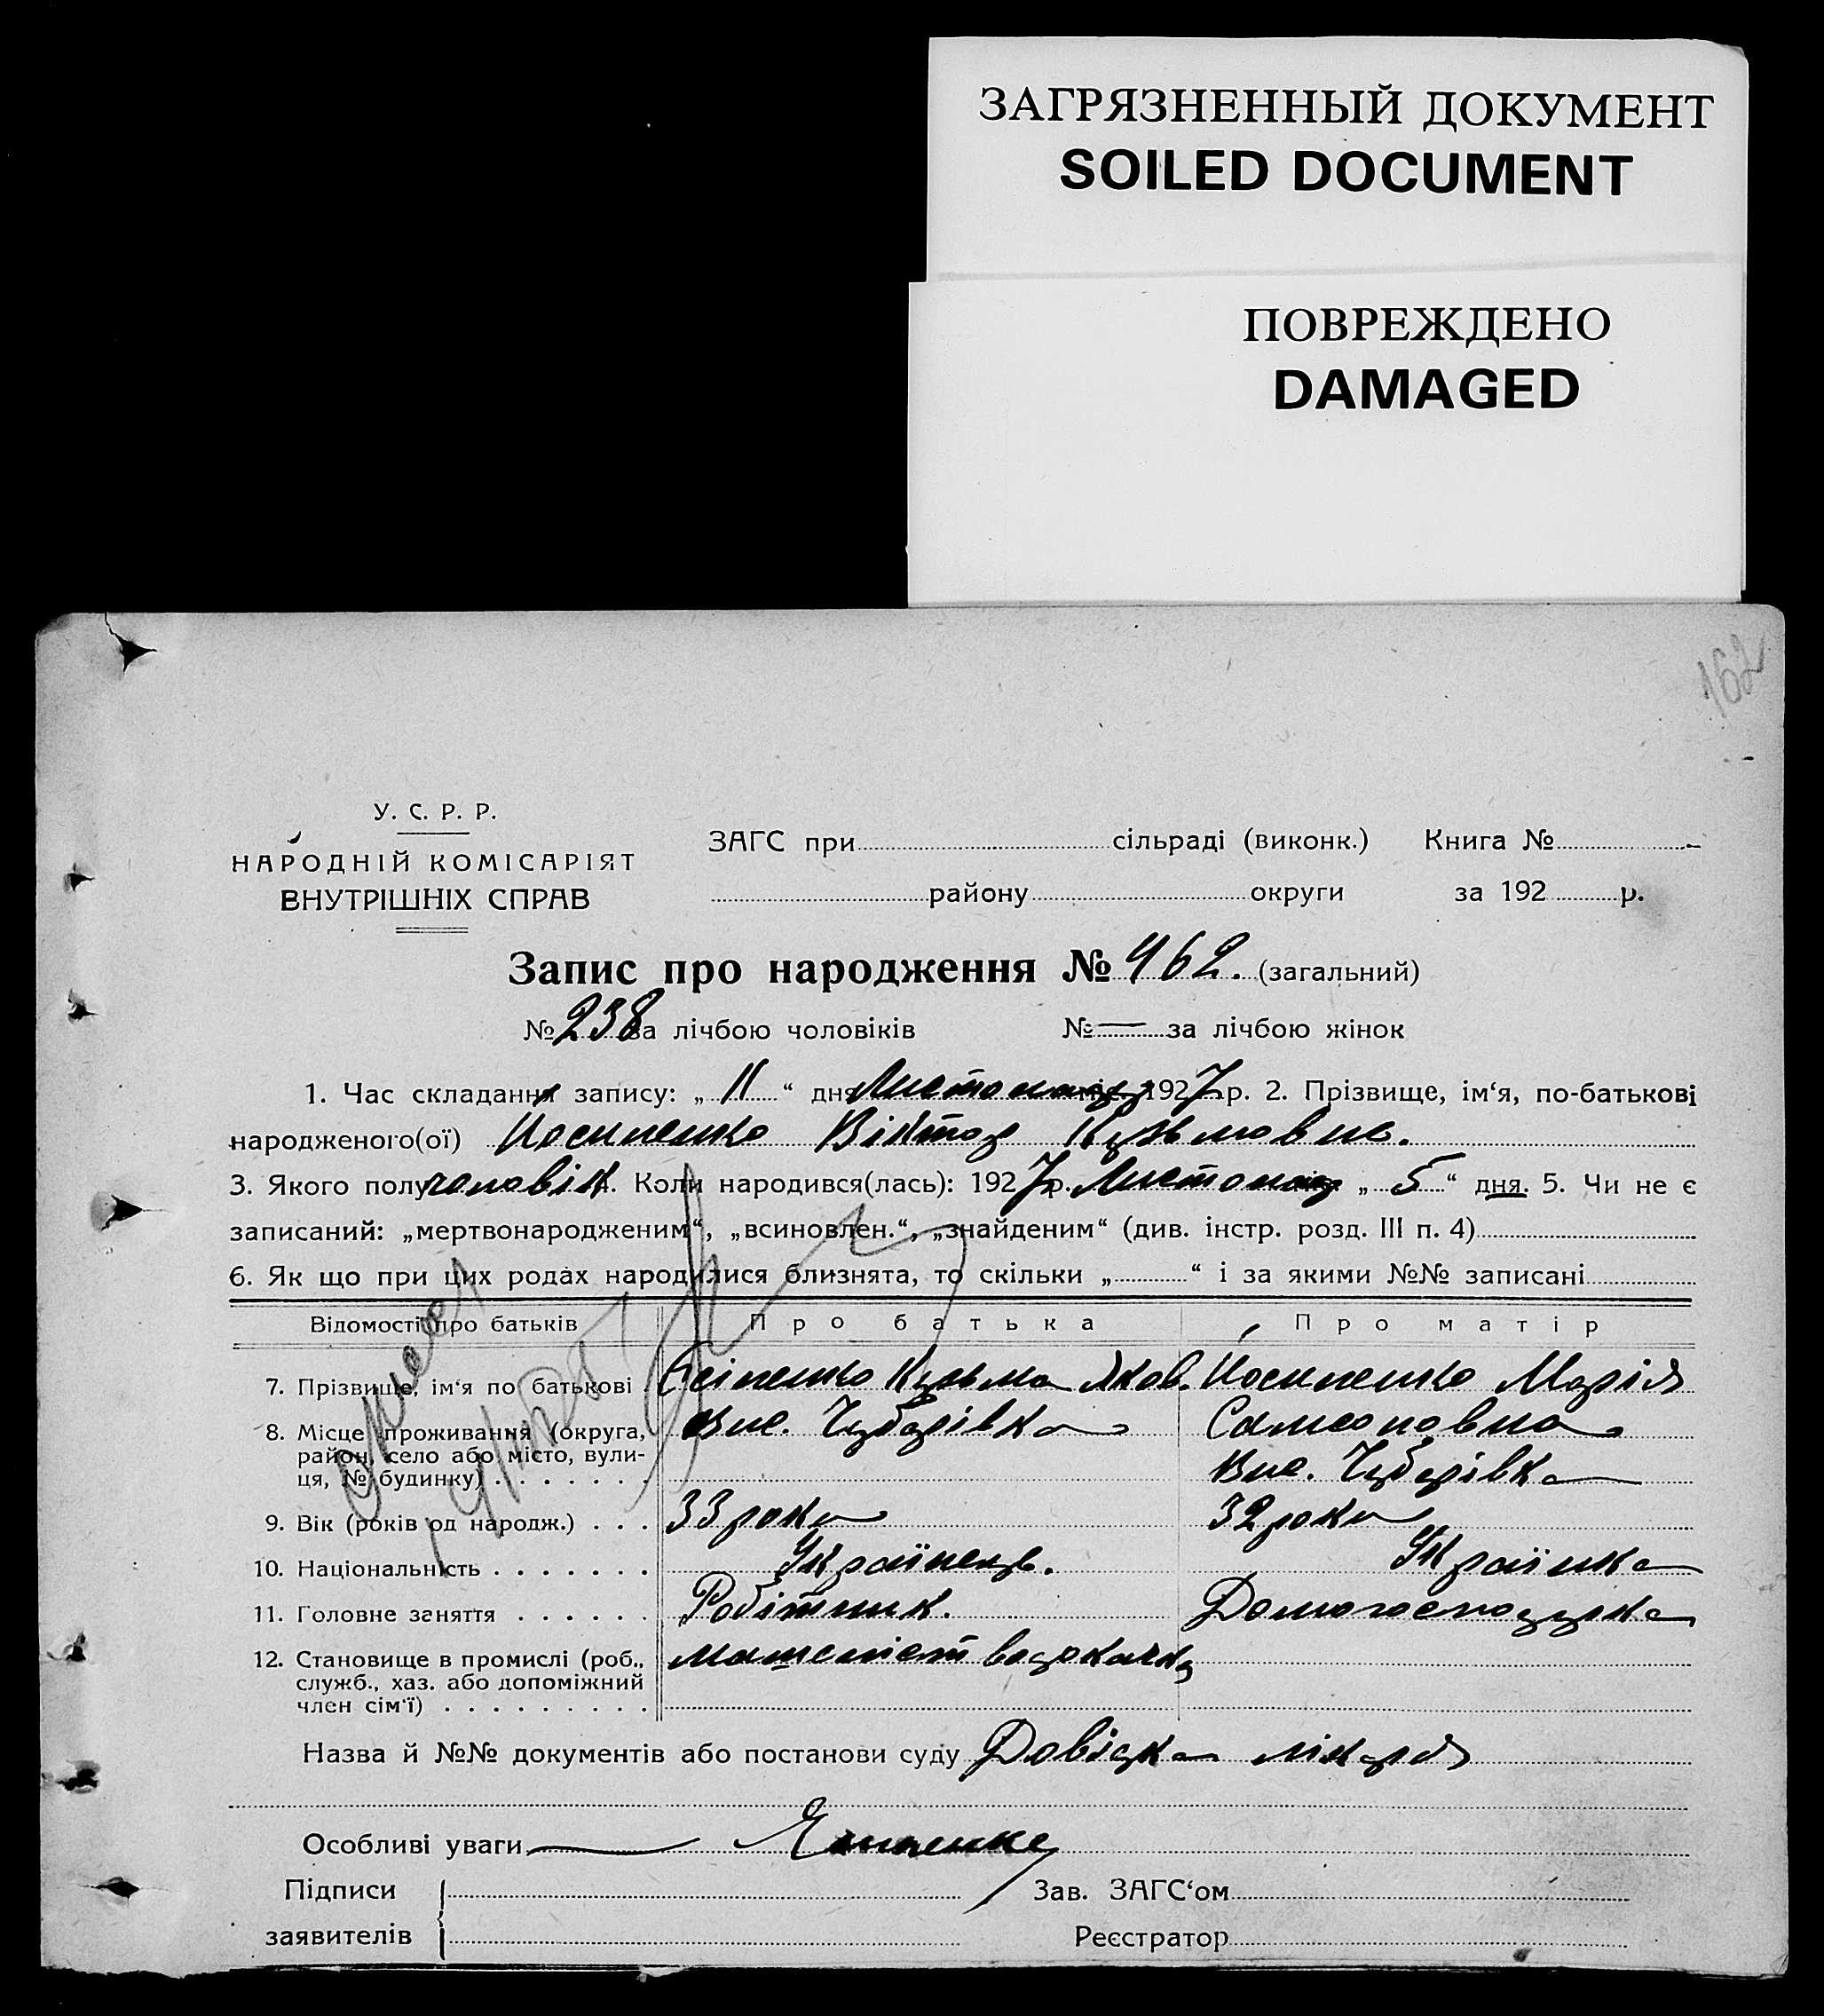 ЗАГРЯЗНЕННЫЙ ДОКУМЕНТ
SOILED DOCUMENT
ПОВРЕЖДЕНО
DAMAGED
162
У. С. Р. Р.
НАРОДНІЙ КОМІСАРІЯТ
ВНУТРІШНІХ СПРАВ
ЗАГС при сільраді (виконк.) Книга №
району округи за 192 р.
Запис про народження № 462. (загальний)
№ 238 за лічбою чоловіків № — за лічбою жінок
1. Час складання запису: „ 11 “ дня Листопад 1927 р. 2. Прізвище, ім‘я, по-батькові
народженого(ої) Йосипенко Віктор Кузьмович.
3. Якого полу чоловік. Коли народився(лась): 1927 р. Листопад „ 5 “ дня. 5. Чи не є
записаний: „мертвонародженим“, „всиновлен.“, „знайденим“ (див. інстр. розд. III п. 4)
6. Як що при цих родах народилися близнята, то скільки „ “ і за якими №№ записані
Відомості про батьків Про батька Про матір
7. Прізвище, ім‘я по батькові . Осіпенко Кузьма Яков. Йосипенко Марія
8. Місце проживання (округа, район, село або місто, вулиця, № будинку) . . . . . . . Вис. Чубарівка Самсоновна
Вис. Чубарівка
9. Вік (років од народж.) . . . 33 роки 32 роки
10. Національність . . . . . . . Українець. Українка
11. Головне заняття . . . . . . Робітник. Домогосподарка
12. Становище в промислі (роб., служб., хаз. або допоміжний член сім‘ї) . . . . . . . . . машеніст водокачки
Назва й №№ документів або постанови суду Довідка лікаря
Особливі уваги —
Підписи Зав. ЗАГС‘ом
заявителів Реєстратор